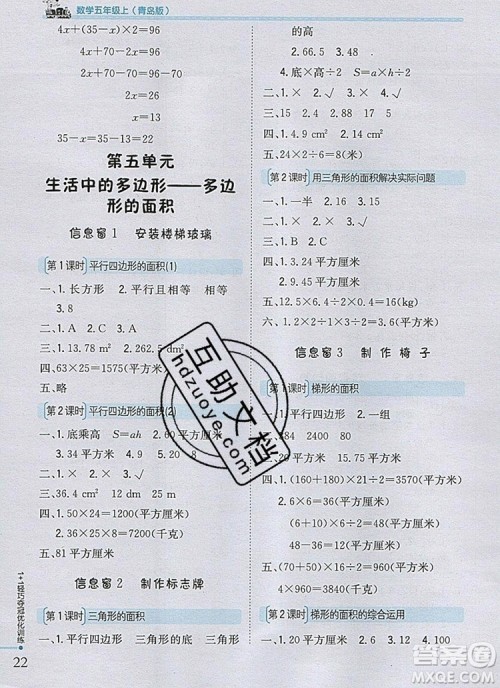 数学五年级上(青岛版)
4x+(35-x)×2=96
4x+70-2x=96
2x=26
x=13
35-x=35-13=22
第五单元
生活中的多边形——多边
形的面积
信息窗1 安装楼梯玻璃
第1课时 平行四边形的面积(1)
一、1.长方形 2.平行且相等 相等
3.8
二、1.√ 2.× 3.×
三、1.13.78 m² 2.262.5 dm²
四、63×25=1575(平方米)
五、略
第2课时 平行四边形的面积(2)
一、1.底乘高 S=ah 2.√
二、1.× 2.× 3.√
三、36 cm² 12 dm 25 m
四、1.50×24=1200(平方厘米)
2.36×25=900(平方米)
900×9.8=8820(千克)
五、80平方厘米
信息窗2 制作标志牌
第1课时 三角形的面积
一、1.平行四边形 三角形的底 三角形
的高
2.66.5 3.24
4.底×高÷2 S=ah÷2
二、1.× 2.× 3.√
三、84 180
四、1.9 cm² 2.4.5 cm²
五、24×9÷2=108(平方厘米)
第2课时 用三角形的面积解决实际问题
一、1.一半 2.平行四边形
二、1.× 2.√ 3.×
三、1.3.24平方米
2.30平方厘米
四、9.81平方米
五、12.5×4÷2÷0.4
六、2.4×1.5÷2=
信息窗3 制作椅子
第1课时 梯形的面积
一、1.平行四边形 2.一组
二、284 2400
三、20平方厘米 15.75平方厘米
四、1.(80+100)×40÷2=3600(平方
厘米)
2.(24+48)×16÷2=576(平方
厘米)
五、(70+50)×16÷2=960(平方米)
960×9=8640(千克)
六、60平方厘米
第2课时 梯形的面积的综合运用
一、1.√ 2.× 3.12 4.100
1+1轻巧夺冠优化训练
22
互助文档
hdzuoye.com